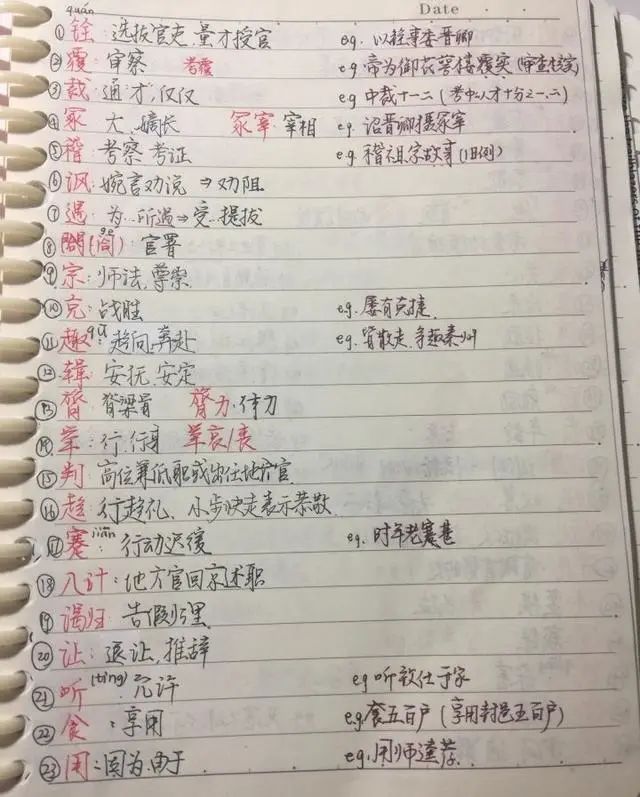 Date
quán
①铨:选拔官吏,量才授官 eg. 以铨事委晋卿
②覆:审察 考覆 eg.帝为御花萼楼覆实(审查核实)
③裁:通才,仅仅 eg 中裁十一二(考中人才十分之一、二)
④冢 大,嫡长 冢宰 宰相 eg 诏晋卿摄冢宰
⑤稽:考察,考证 eg.稽祖宗故事(旧例)
⑥讽:婉言劝说⇒劝阻
⑦遇:为…所遇⇒受…提拔
⑧閤(阁) gé 官署
⑨宗:师法,尊崇
⑩克:战胜 eg.屡有克捷
qū
⑪趣:趋向,奔赴 eg.皆散走,争趣秦州
⑫辑:安抚,安定
⑬膂:脊梁骨 膂力:体力
⑭举:行,行事 举哀/丧
⑮判 高位兼低职或出任地方官
⑯趋:行趋礼、小步快走表示恭敬
jiǎn
⑰蹇:行动迟缓 eg.时年老蹇甚
⑱入计:地方官回京述职
⑲谒归 告假归里
⑳让:退让,推辞
㉑听(tīng)允许 eg 听致仕于家
㉒食:享用 eg.食五百户(享用封邑五百户)
㉓用:因为,由于 eg.用师达荐